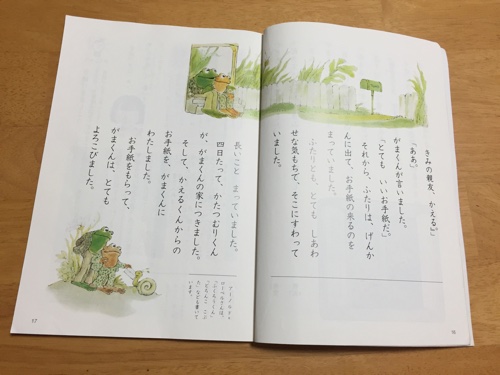 きみの親友、かえる。」
「ああ。」
がまくんが言いました。
「とても いいお手紙だ。」
それから、ふたりは、げんか
んに出て、お手紙の来るのを
まっていました。
ふたりとも、とても しあわ
せな気もちで、そこにすわって
いました。
長いこと まっていました。
四日たって、かたつむりくん
が、がまくんの家につきました。
そして、かえるくんからの
お手紙を、がまくんに
わたしました。
お手紙をもらって、
がまくんは、とても
よろこびました。
17